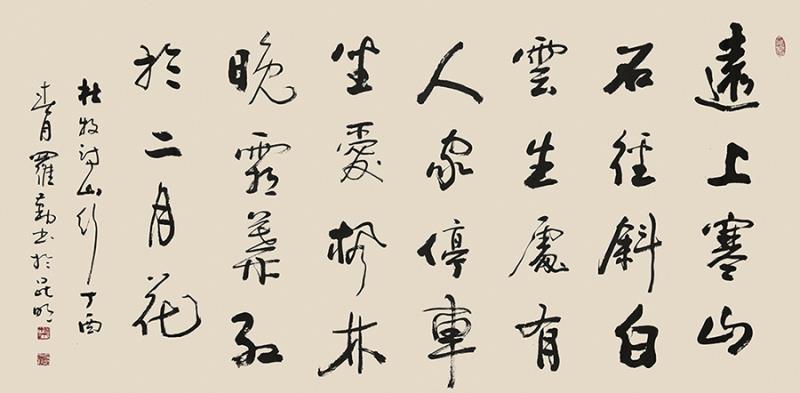 遠上寒山
石徑斜白
雲生處有
人家停車
坐愛楓林
晚霜葉紅
於二月花
杜牧詩山行丁酉
羅勤書於昆明